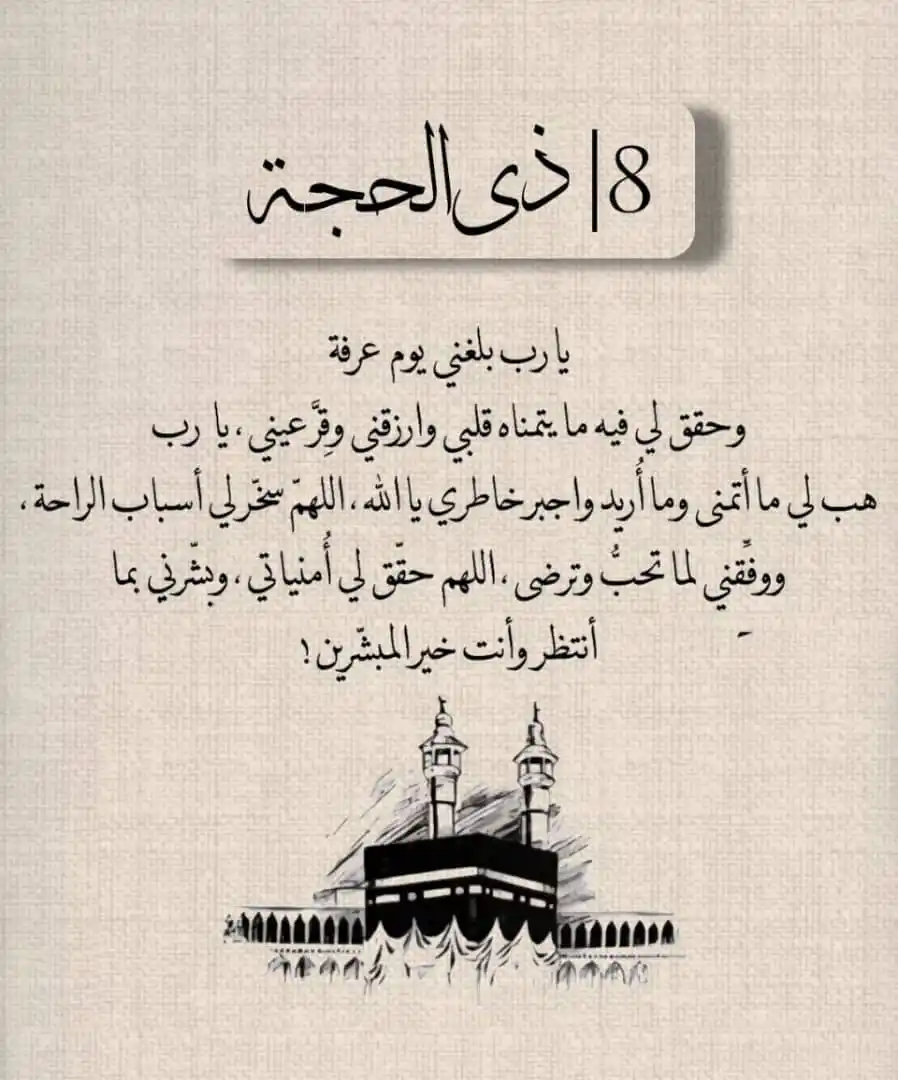 8| ذى الحجة
يا رب بلغني يوم عرفة
وحقق لي فيه ما يتمناه قلبي وارزقني وقِرَّ عيني ، يا رب
هب لي ما أتمنى وما أُريد واجبر خاطري يا الله ، اللهمّ سخّر لي أسباب الراحة ،
ووفِّقني لما تحبُّ وترضى ، اللهم حقّق لي أُمنياتي ، وبشّرني بما
أنتظر وأنت خير المبشّرين !